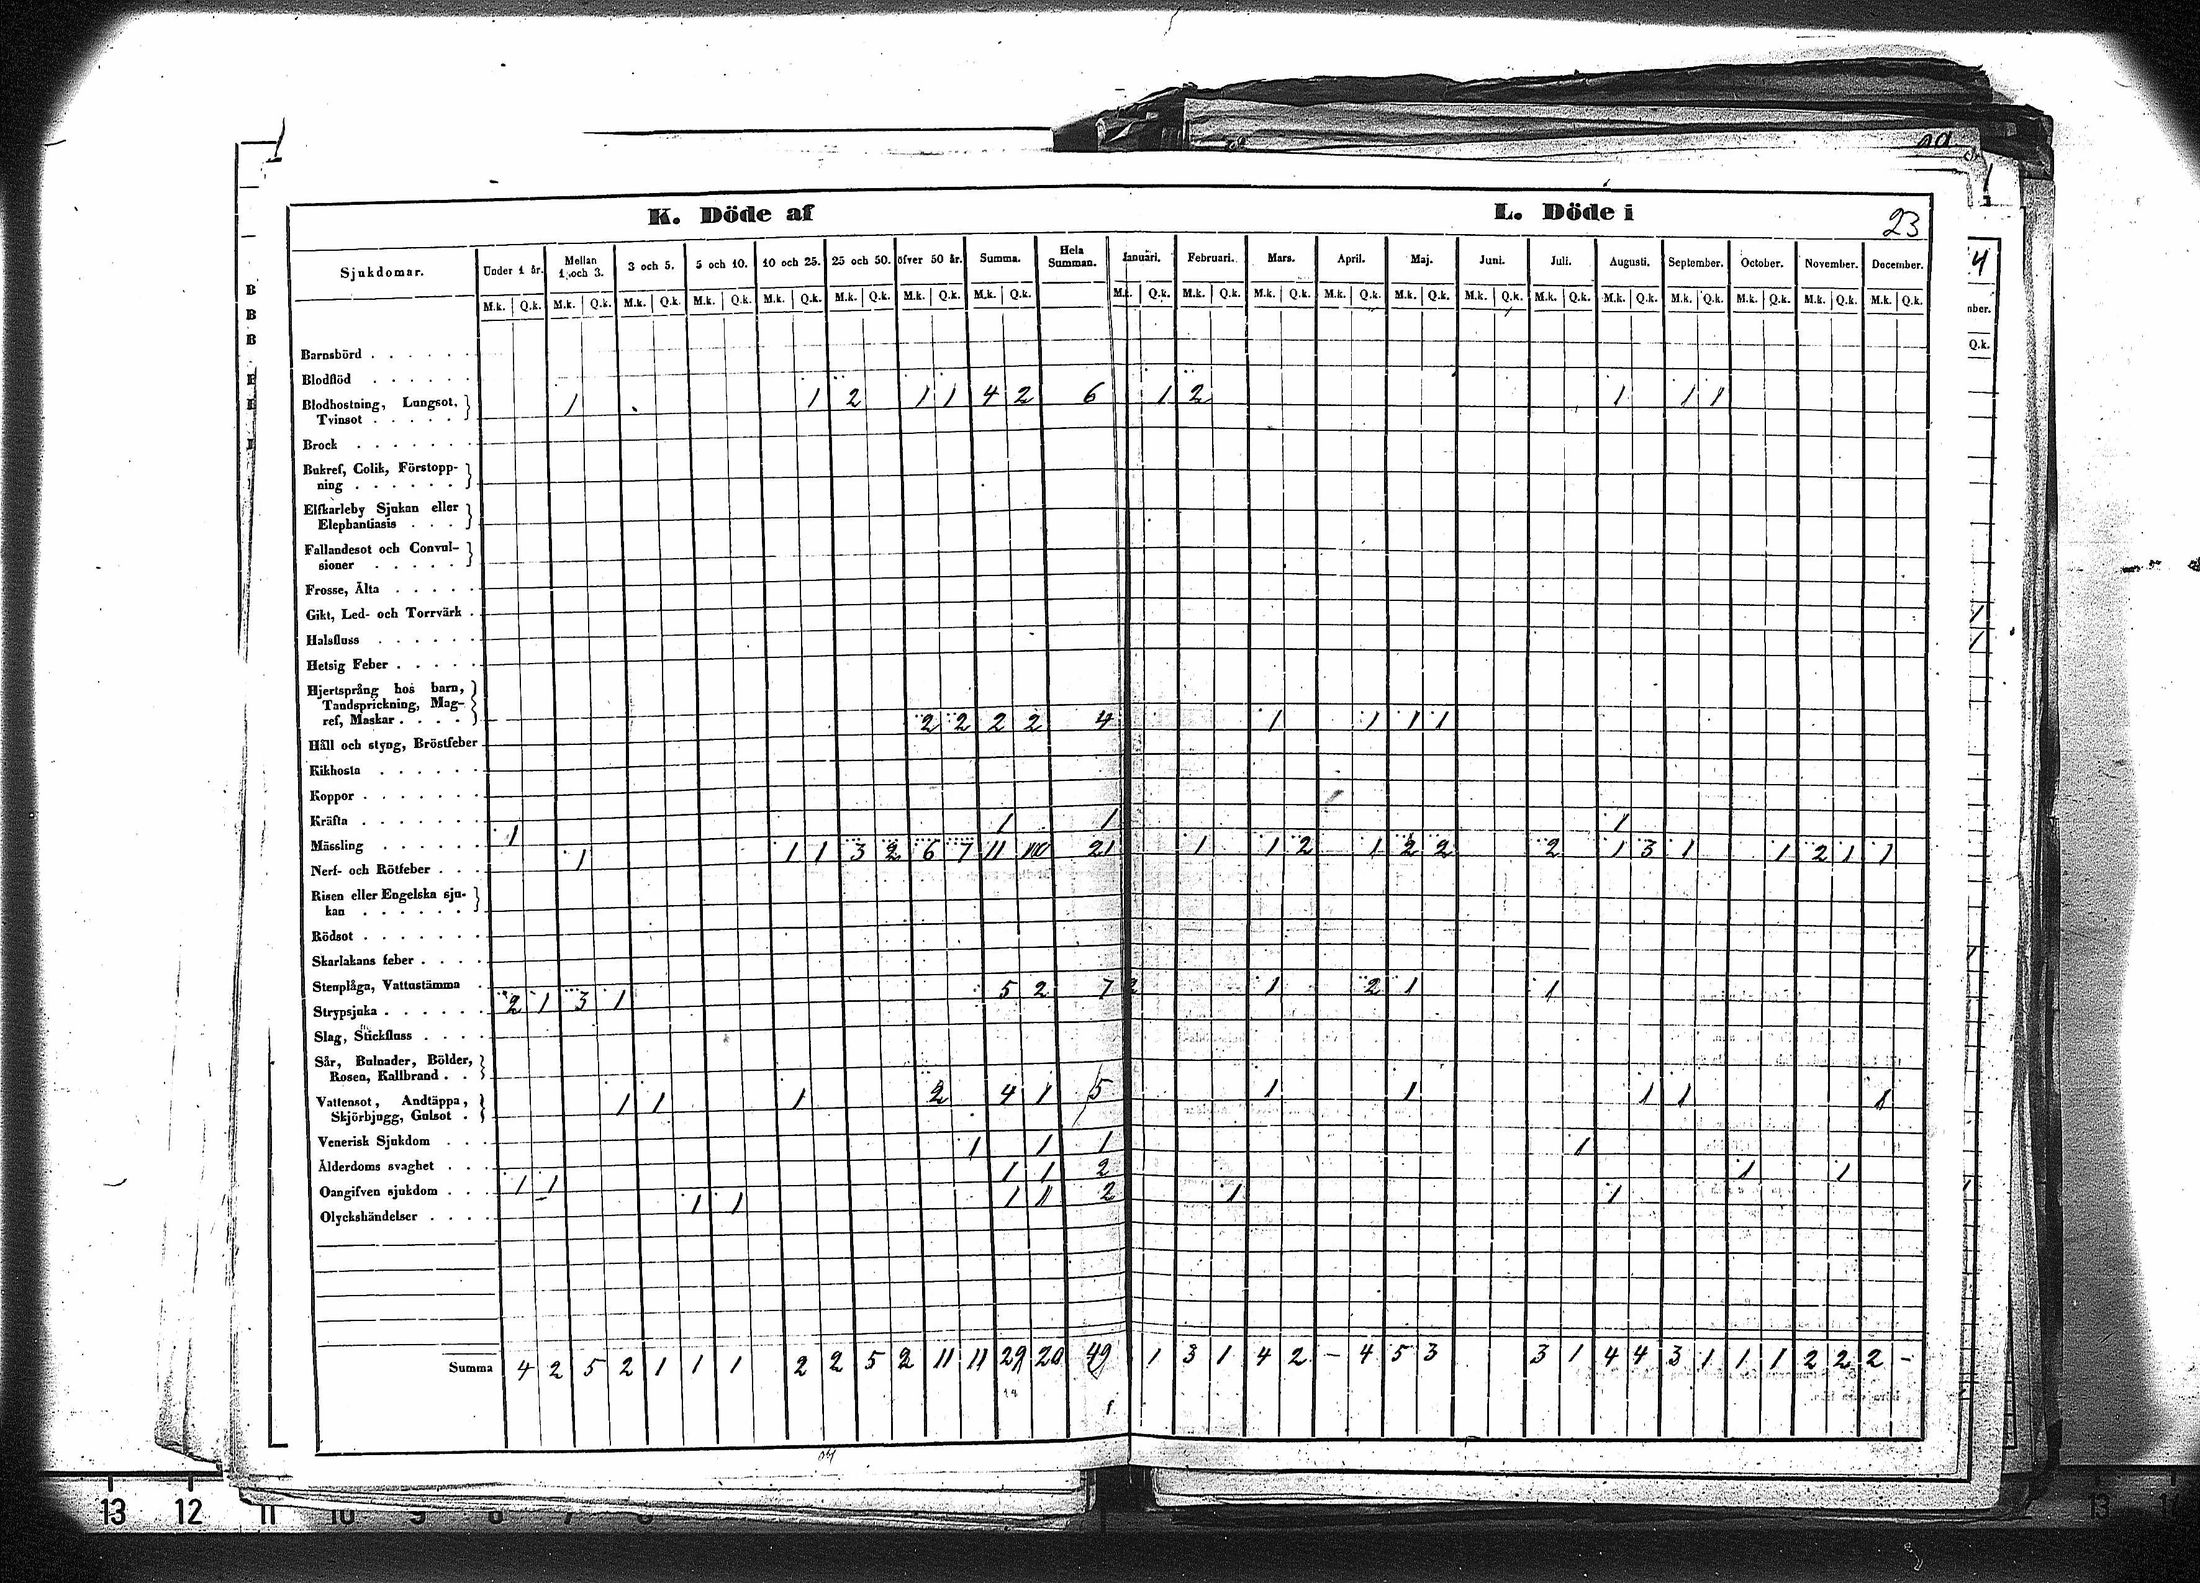 K. Döde af L. Döde i 23
Sjukdomar. Under 1 år. Mellan 1 och 3. 3 och 5. 5 och 10. 10 och 25. 25 och 50. öfver 50 år. Summa. Hela Summan. Januari. Februari. Mars. April. Maj. Juni. Juli. Augusti. September. October. November. December.
M.k. Q.k. M.k. Q.k. M.k. Q.k. M.k. Q.k. M.k. Q.k. M.k. Q.k. M.k. Q.k. M.k. Q.k. M.k. Q.k. M.k. Q.k. M.k. Q.k. M.k. Q.k. M.k. Q.k. M.k. Q.k. M.k. Q.k. M.k. Q.k. M.k. Q.k. M.k. Q.k. M.k. Q.k. M.k. Q.k.
Barnsbörd
Blodflöd
Blodhostning, Lungsot, 1 1 2 1 1 4 2 6 1 2 1 1 1
Tvinsot
Brock
Bukref, Colik, Förstopp-
ning
Elfkarleby Sjukan eller
Elephantiasis
Fallandesot och Convul-
sioner
Frosse, Älta
Gikt, Led- och Torrvärk
Halsfluss
Hetsig Feber
Hjertsprång hos barn,
Tandsprickning, Mag-
ref, Maskar
2 2 2 2 4 1 1 1 1
Håll och styng, Bröstfeber
Kikhosta
Koppor
Kräfta
1 1 1 1
Mässling
1 1 1 3 2 6 7 11 10 21 1 1 2 1 2 2 2 1 3 1 1 2 1 1
Nerf- och Rötfeber
Risen eller Engelska sju-
kan
Rödsot
Skarlakans feber
Stenplåga, Vattustämma
2 1 3 1 5 2 7 2 1 2 1 1
Strypsjuka
Slag, Stickfluss
Sår, Bulnader, Bölder,
Rosen, Kallbrand
1 1 1 2 4 1 5 1 1 1 1 1
Vattensot, Andtäppa,
Skjörbjugg, Gulsot
Venerisk Sjukdom
1 1 1 1
Ålderdoms svaghet
1 1 1 1 2 1 1
Oangifven sjukdom
1 1 1 1 2 1 1
Olyckshändelser
Summa 4 2 5 2 1 1 1 2 2 5 2 11 11 29 20 49 1 3 1 4 2 – 4 5 3 3 1 4 4 3 1 1 1 2 2 2 –
4
mber.
Q.k.
B
B
B
13 12 11 10 9 8 7 8
13